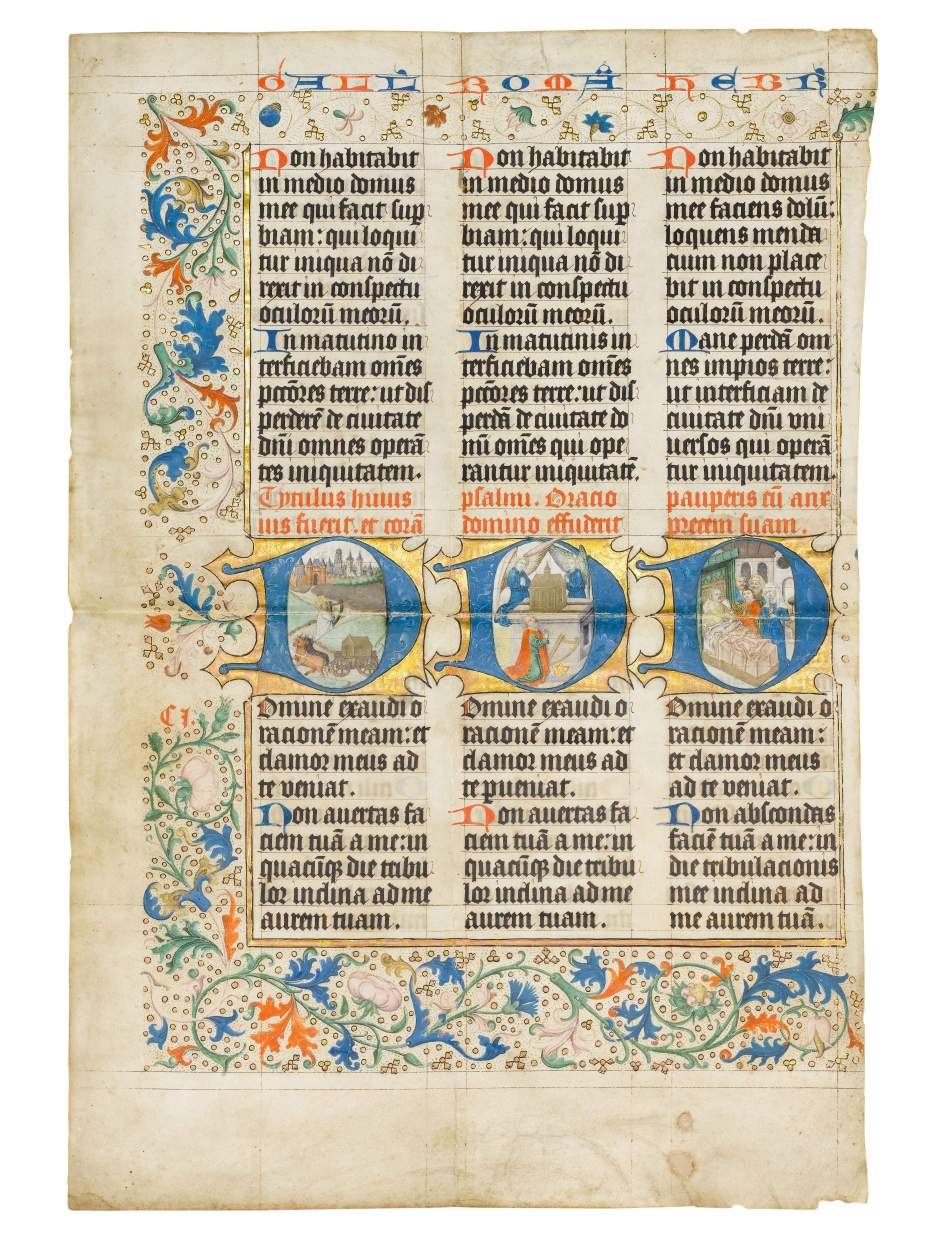 GALL̄
ROMĀ
HEBR̄
Non habitabit
in medio domus
mee qui facit sup
biam: qui loqui
tur iniqua nō di
rexit in conspectu
oculorū meorū.
In matutino in
terficiebam om̄es
pccōres terre: ut dis
perderē de ciuitate
dn̄i omnes operā
tes iniquitatem.
Non habitabit
in medio domus
mee qui facit sup
biam: qui loqui
tur iniqua nō di
rexit in conspectu
oculorū meorū.
In matutinis in
terficiebam om̄es
pccōres terre: ut dis
perdā de ciuitate do
mī om̄es qui ope
rantur iniquitatē.
Non habitabit
in medio domus
mee faciens dolū:
loquens menda
cium non place
bit in conspectu
oculorū meorū.
Mane perdā om
nes impios terre:
ut interficiam de
ciuitate dn̄i vni
uersos qui operā
tur iniquitatem.
Tytulus huius psalmi. Oracio pauperis cū anx
ius fuerit. et corā domino effuderit precem suam.
D D D
CI.
Omine exaudi o
racionē meam: et
clamor meus ad
te veniat.
Non auertas fa
ciem tuā a me: in
quacūqꝫ die tribu
lor inclina ad me
aurem tuam.
Omine exaudi o
racionē meam: et
clamor meus ad
te pueniat.
Non auertas fa
ciem tuā a me: in
quacūqꝫ die tribu
lor inclina ad me
aurem tuam.
Omine exaudi o
racionē meam:
et clamor meus
ad te veniat.
Non abscondas
faciē tuā a me: in
die tribulacionis
mee inclina ad
me aurem tuā.